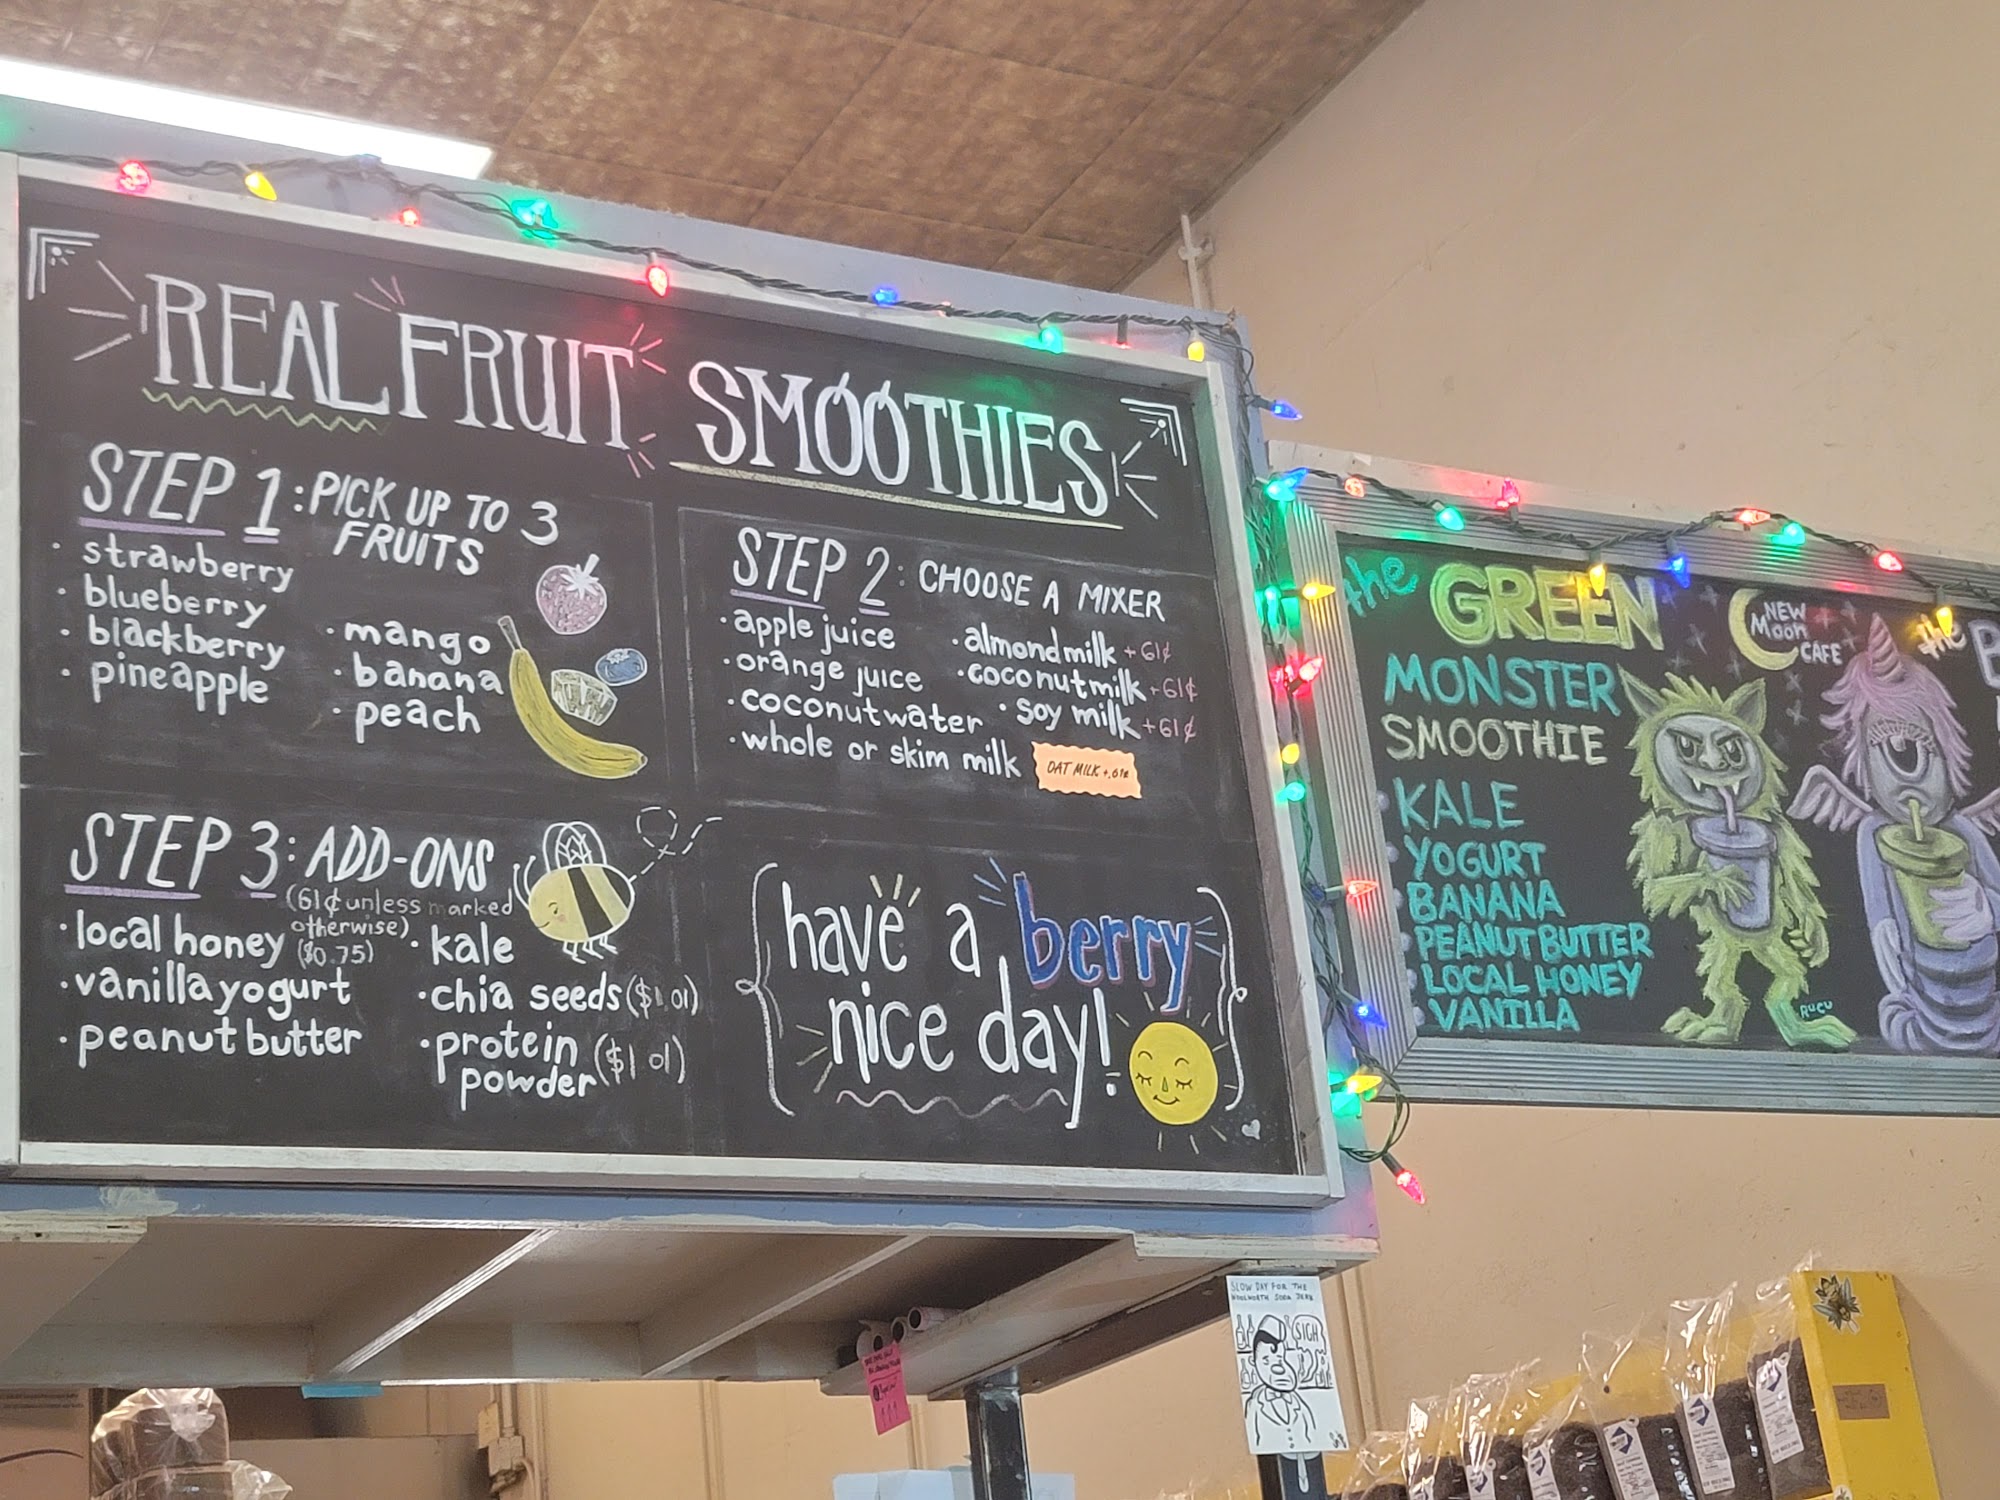 REAL FRUIT SMOOTHIES
STEP 1: PICK UP TO 3
FRUITS
· strawberry
· blueberry
· blackberry
· pineapple
· mango
· banana
· peach
STEP 2: CHOOSE A MIXER
· apple juice
· orange juice
· coconut water
· whole or skim milk
· almond milk +61¢
· coconut milk +61¢
· soy milk +61¢
OAT MILK +.61¢
STEP 3: ADD-ONS
(61¢ unless marked
otherwise)
· local honey ($0.75)
· vanilla yogurt
· peanut butter
· kale
· chia seeds ($1.01)
· protein
powder ($1.01)
have a berry
nice day!
the GREEN
MONSTER
SMOOTHIE
KALE
YOGURT
BANANA
PEANUT BUTTER
LOCAL HONEY
VANILLA
NEW
Moon
CAFE
the
SLOW DAY FOR THE
WOOLWORTH SODA JERK
SIGH